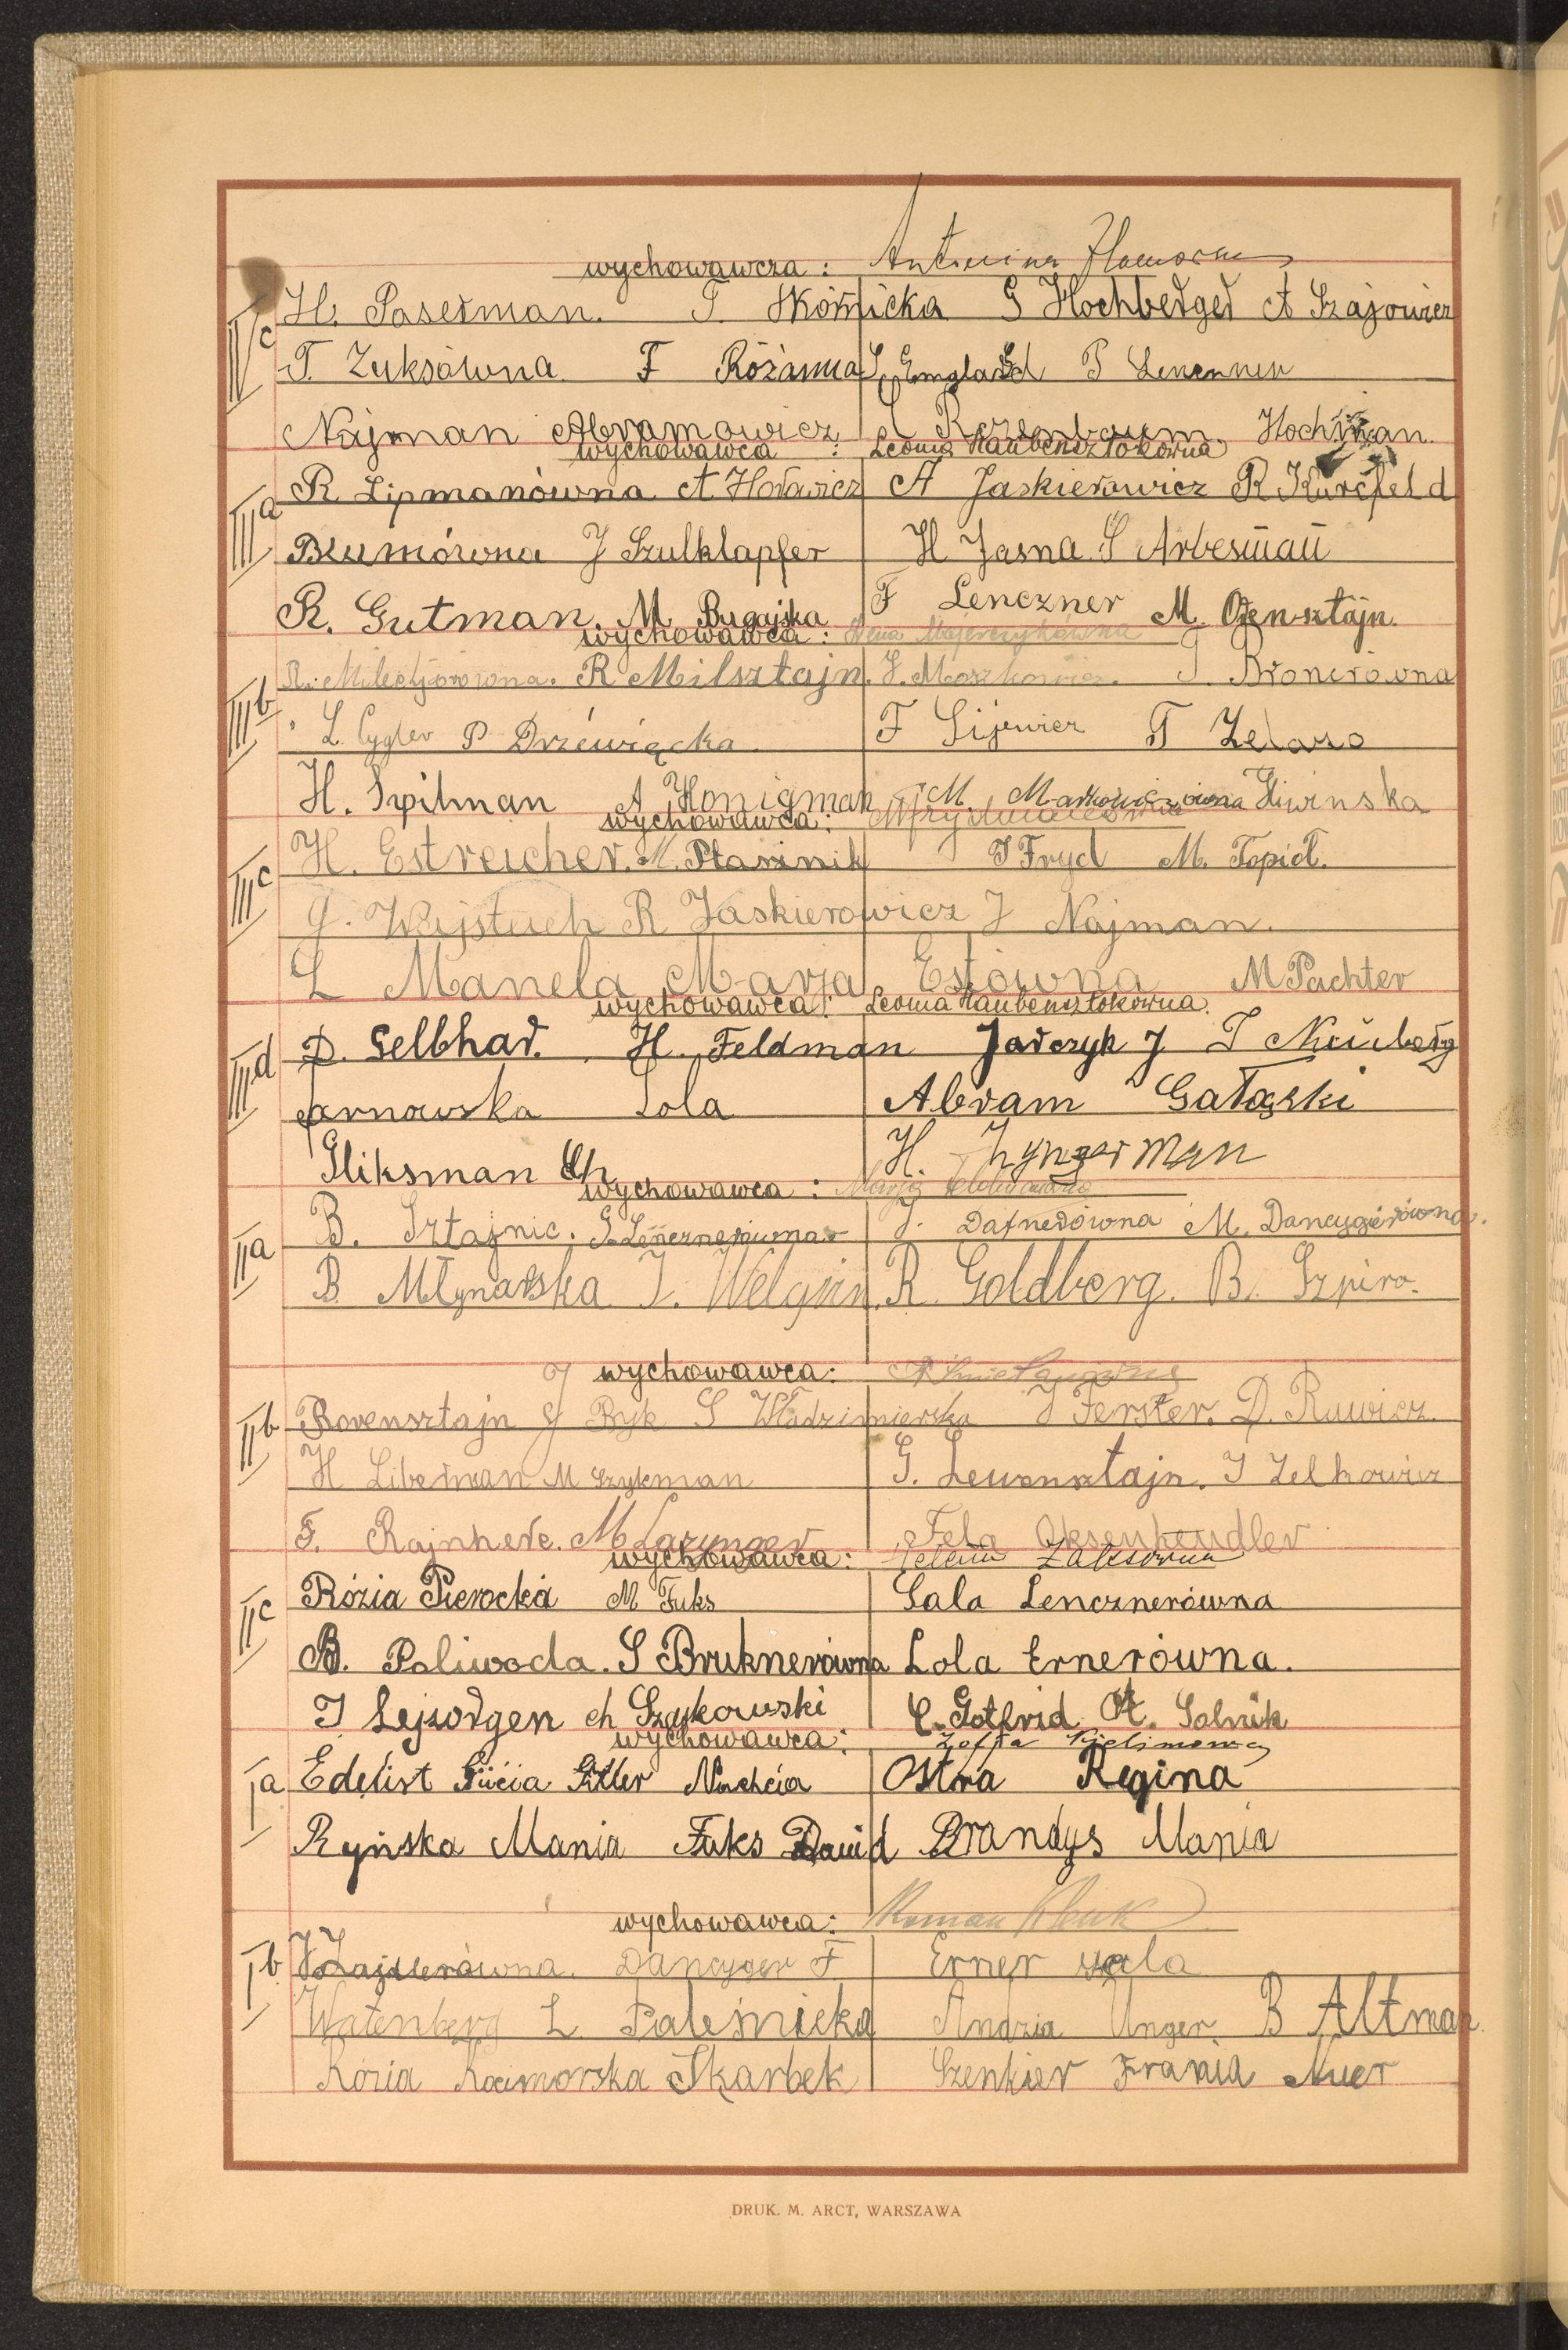 wychowawcza: Antonina
IVc H. Paserman. T. Skórnicka G Hochberger A Szajowicz
T. Zuksówna F Różanna S. England P Lenczner
Najman Abramowicz Rozenbaum. Hochman.
wychowawca: Leonia Haubensztokówna
IIIa R Lipmanówna A. Horowicz A Jaskierowicz R Kurcfeld
Blumówna J Szulklapfer H Jasna S Arbesman
R. Gutman. M. Bugajska F Lenczner M. Orensztajn.
wychowawca: Hena Majerczykówna
IIIb R. R Milsztajn. J. Moszkowicz. J. Bronerówna
L. Cygler P Drzewięcka F Lijewicz T Zelazo
H. Szpilman A Honigman M. Markowiczówna Gliwinska
wychowawca:
IIIc H. Estreicher. M. Ptasznik J Fryd M. Topioł.
G. Wajstuch R Jaskierowicz J Najman.
L Manela Marja Estówna M Pachter
wychowawca: Leonia Haubensztokówna.
IIId D. Gelbhar. H. Feldman Jarczyk J J Nurberg
Tarnowska Lola Abram Gałązki
Gliksman Ch H Zyngerman
wychowawca: Marja
IIa B. Sztajnic. G. Lencznerówna J. Dafnerówna M. Dancygierówna.
B. Młynarska J. Welgrin. R. Goldberg. B. Szpiro.
wychowawca:
IIb Rorensztajn J Bryk S Włodzimierska J Ferster. D. Rawicz.
H Liberman M Szykman G. Lewensztajn. J Zelkowicz
F. Rajnherc. M Lazynger Fela Oksenhendler
wychowawca: Helena Zaksówna
IIc Rózia Pierocka M Fuks Sala Lencznerówna
B. Poliwoda. S Bruknerówna Lola Ernerówna.
J Lejzorgen ch Szykowski C. Gotfrid A. Solnik
wychowawca: Zofja
Ia Edelist Gucia Giller Nachcia Ostra Regina
Ryńska Mania Fuks Dawid Brandys Mania
wychowawca: Roman
Ib Zajdlerówna. Dancyger F Erner sala
Watenberg L. Paleśnicka Andzia Unger. B Altman.
Rózia Kocimorska Skarbek Szenkier Frania Nuer
DRUK. M. ARCT, WARSZAWA